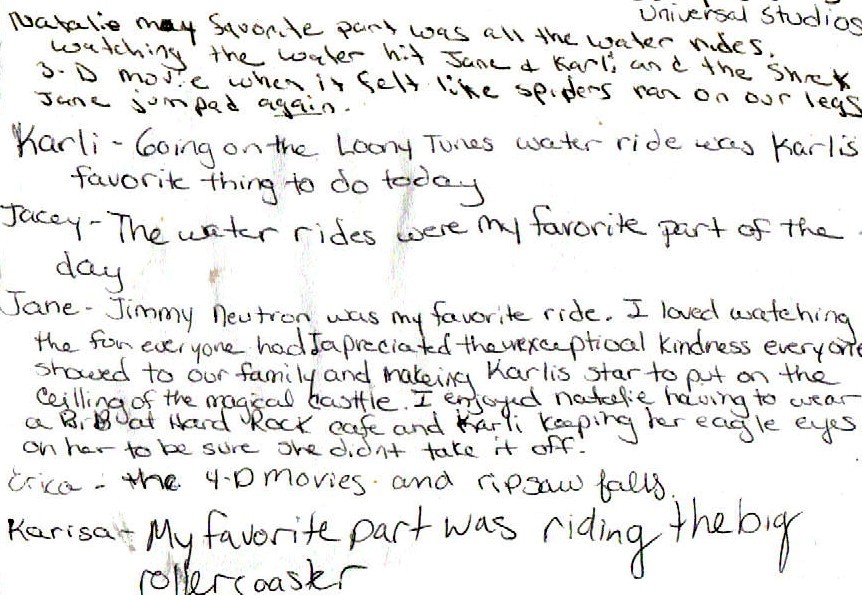 Universal Studios
Natalie may favorite part was all the water rides.
watching the water hit Jane & Karli and the Shrek
3-D movie when it felt like spiders ran on our legs
Jane jumped again.
Karli - Going on the Loony Tunes water ride was Karlis
favorite thing to do today
Jacey - The water rides were my favorite part of the
day
Jane - Jimmy Neutron was my favorite ride. I loved watching
the fun everyone had I apreciated the exceptioal kindness everyone
showed to our family and makeing Karlis star to put on the
ceilling of the magical casttle. I enjoyed natalie having to wear
a BiB at Hard Rock cafe and Karli keeping her eagle eyes
on her to be sure she didnt take it off.
Erica - the 4-D movies and ripsaw falls.
Karisa - My favorite part was riding the big
rollercoaster